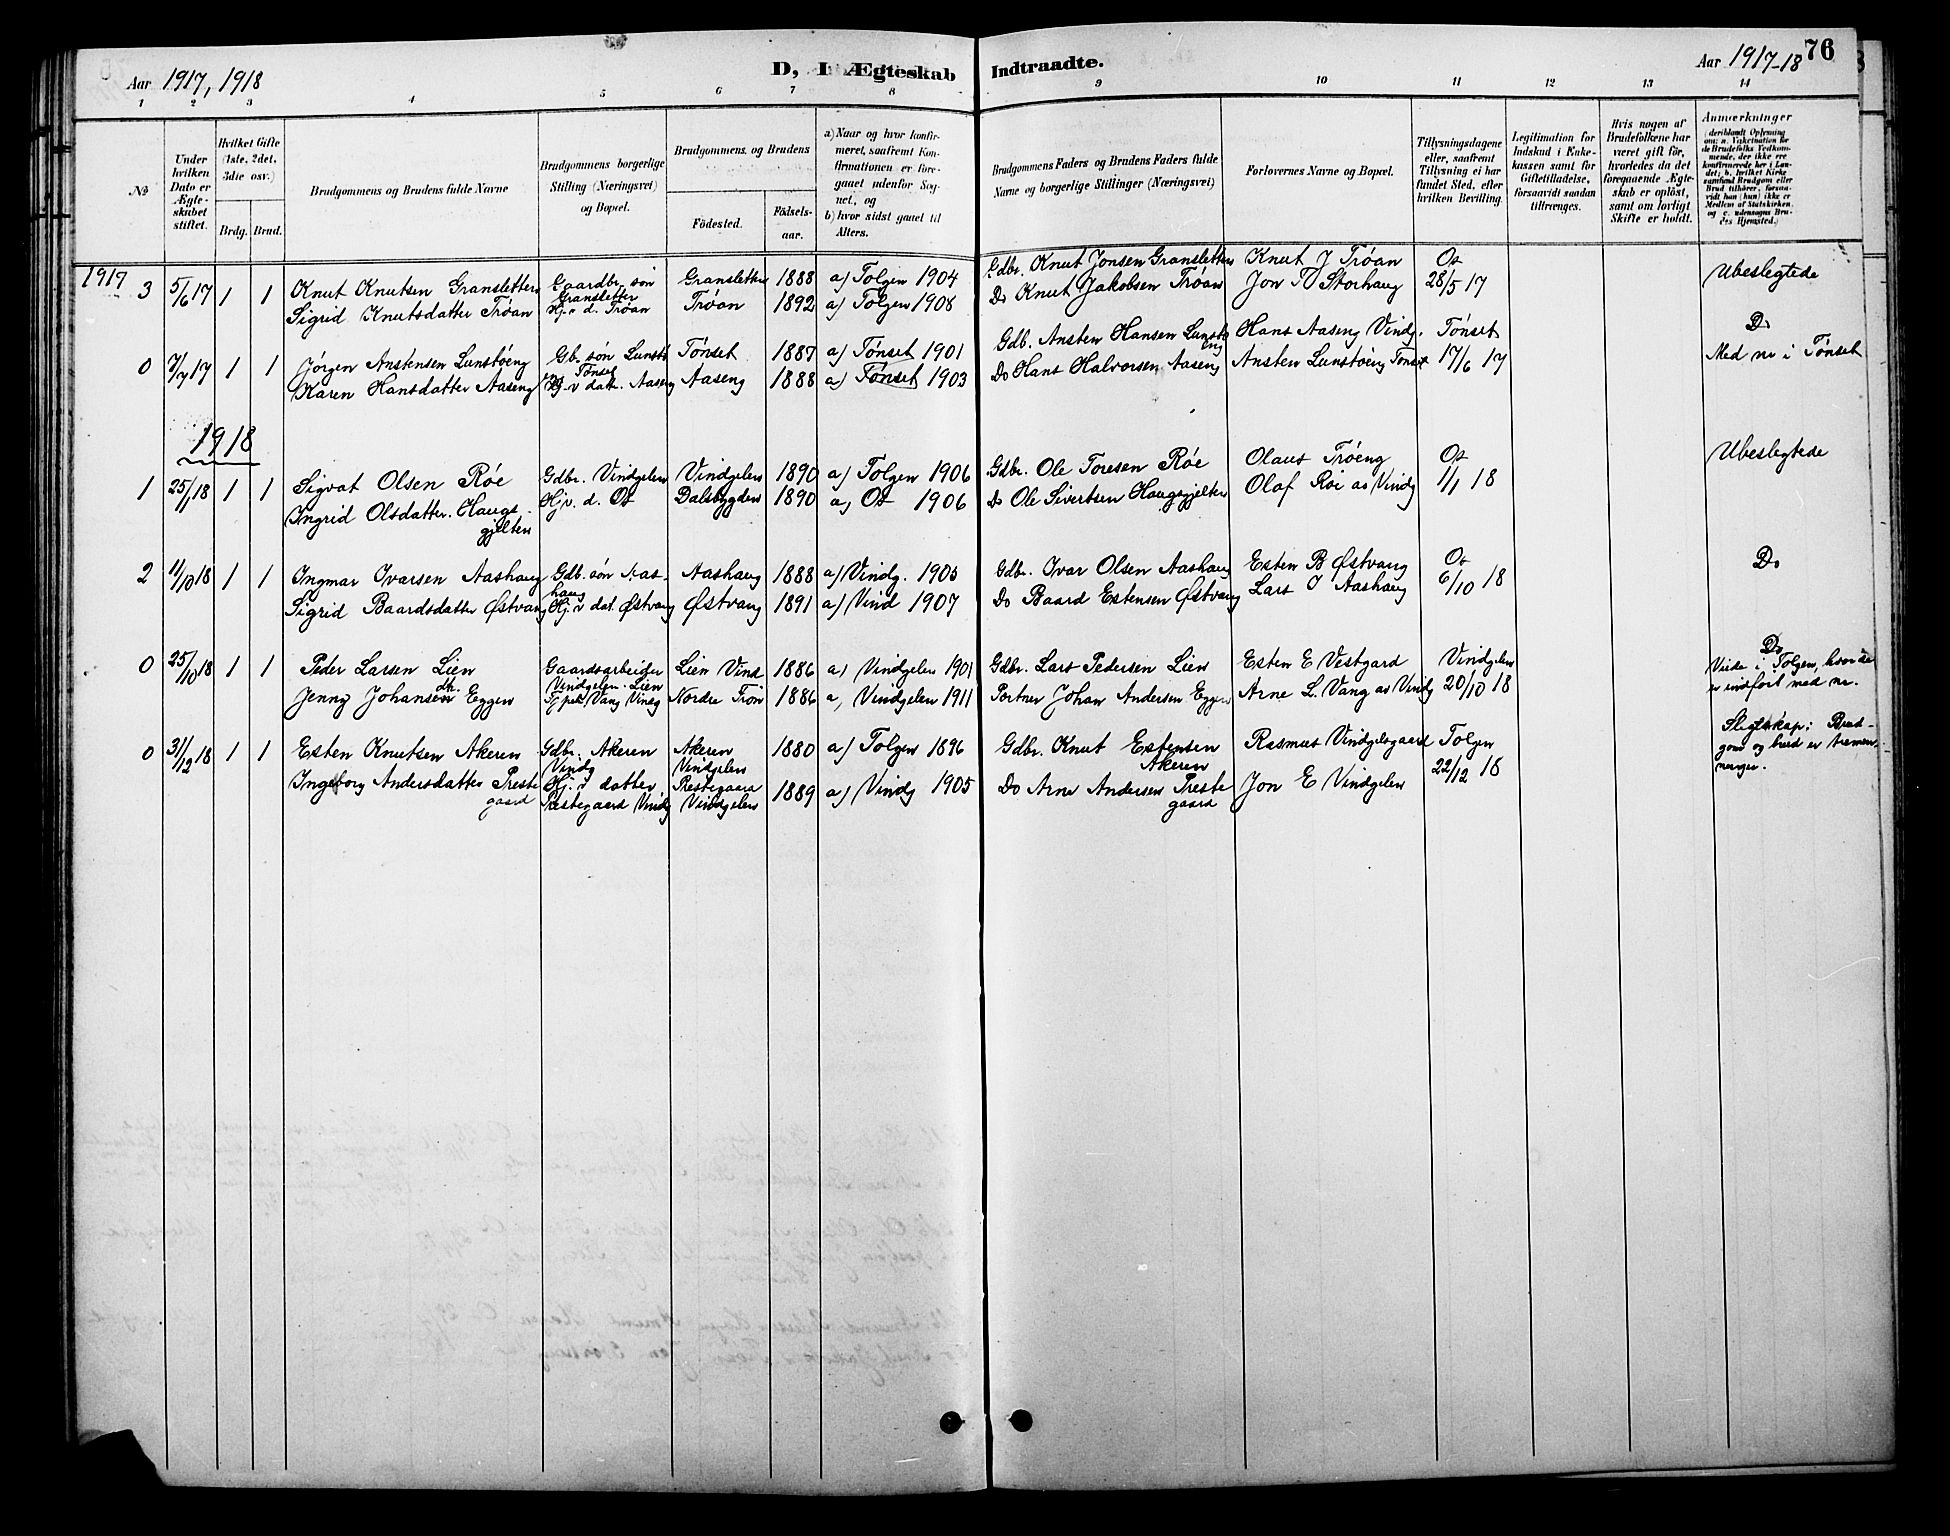 Aar 1917, 1918
D, I Ægteskab
Indtraadte.
Aar 1917-18
76
1 2 3 4 5 6 7 8 9 10 11 12 13 14
No
Under hvilken Dato er Ægteskabet stiftet.
Hvilket Gifte (1ste, 2det, 3die osv.)
Brdg. Brud.
Brudgommens og Brudens fulde Navne
Brudgommens borgerlige Stilling (Næringsvei) og Bopæl.
Brudgommens og Brudens
Födested.
Födselsaar.
a) Naar og hvor konfirmeret, saafremt Konfirmationen er foregaaet udenfor Sognet, og
b) hvor sidst gaaet til Alters.
Brudgommens Faders og Brudens Faders fulde Navne og borgerlige Stillinger (Næringsvei)
Forlovernes Navne og Bopæl.
Tillysningsdagene eller, saafremt Tillysning ei har fundet Sted, efter hvilken Bevilling.
Legitimation for Indskud i Enkekassen samt for Giftetilladelse, forsaavidt saadan tiltrænges.
Hvis nogen af Brudefolkene har været gift för, hvorledes da det foregaaende Ægteskab er oplöst, samt om lovligt Skifte er holdt.
Anmærkninger
(deriblandt Oplysning om: a. Vakcination for de Brudefolks Vedkommende, der ikke ere konfirmerede her i Landet; b. hvilket Kirkesamfund Brudgom eller Brud tilhörer, forsaavidt han (hun) ikke er Medlem af Statskirken, og c. udensogns Brudes Hjemsted.)
1917
3 5/6 17 1 1 Knut Knutsen Gransletten Gaardbr. søn Gransletten Gransletten 1888 a) Tolgen 1904 Gdbr. Knut Jonsen Gransletten Knut J Trøan Os 28/5 17 Ubeslegtede
Sigrid Knutsdatter Trøan Hj. v d. Trøan Trøan 1892 a) Tolgen 1908 Do Knut Jakobsen Trøan Jon Storhaug
0 7/7 17 1 1 Jørgen Anstensen Lunstøeng Gb. søn Lunstøeng Tønset Tønset 1887 a) Tønset 1901 Gdb. Ansten Hansen Lunstøeng Hans Aaseng Vindg. Tønset 17/6 17 Do
Med nr i Tønset
Karen Hansdatter Aaseng Hj. v datt. Aaseng Aaseng 1888 a) Tønset 1903 Do Hans Halvorsen Aaseng Ansten Lunstøeng Tønset
1918
1 25/1 18 1 1 Sigvat Olsen Røe Gdbr. Vindgelen Vindgelen 1890 a) Tolgen 1906 Gdbr. Ole Toresen Røe Olaus Trøeng Os 1/1 18 Ubeslegtede
Ingrid Olsdatter Haugsgjelten Hj. v. d. Os Dalsbygden 1890 a) Os 1906 Do Ole Sivertsen Haugsgjelten Olaf Røe as Vindg
2 11/10 18 1 1 Ingmar Ivarsen Aashaug Gdb. søn Aashaug Aashaug 1888 a) Vindg. 1905 Gdbr. Ivar Olsen Aashaug Esten B Østvang Os 6/10 18 Do
Sigrid Baardsdatter Østvang Hj. v dat. Østvang Østvang 1891 a) Vind 1907 Do Baard Estensen Østvang Lars I Aashaug
0 25/10 18 1 1 Peder Larsen Lien Gaardsarbeider Vindgelen Lien Lien Vind 1886 a) Vindgelen 1901 Gdbr. Lars Pedersen Lien Esten E Vestgard Vindgelen 20/10 18 Do
Viede i Tolgen, hvor de er indført med nr.
Jenny Johansen dtr. Eggen Tj.pik. Vang Vindg Nordre Trøn 1886 a, Vindgelen 1911 Portner Johan Andersen Eggen Arne L. Vang as Vindg
0 31/12 18 1 1 Esten Knutsen Akeren Gdbr. Akeren Vindg Akeren Vindgelen 1880 a) Tolgen 1896 Gdbr. Knut Estensen Akeren Rasmus Vindgelsgaard Tolgen 22/12 18 Slegtskap: Brudgom og brud er tremenninger.
Ingeborg Andersdatter Prestegaard Hj. v datter Prestegaard Vindg Prestegaard Vindgelen 1889 a) Vindg 1905 Do Arne Andersen Prestegaard Jon E Vindgelen